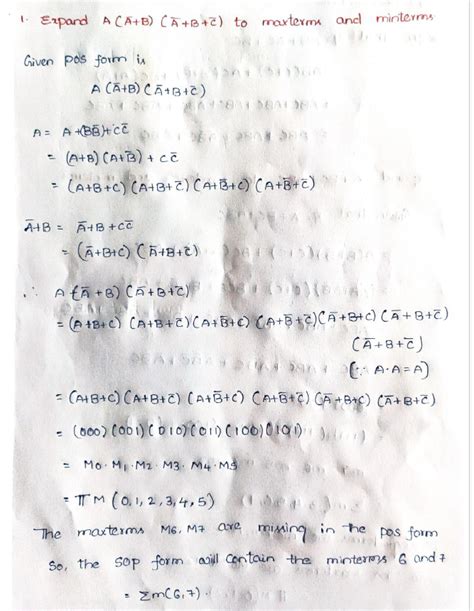 1. Expand A(Ā+B) (Ā+B+C̄) to maxterms and minterms
Given pos form is
A(Ā+B)(Ā+B+C̄)
A = A+(BB̄)+CC̄
= (A+B)(A+B̄) + CC̄
= (A+B+C) (A+B+C̄) (A+B̄+C) (A+B̄+C̄)
Ā+B = Ā+B+CC̄
= (Ā+B+C) (Ā+B+C̄)
∴ A (Ā+B) (Ā+B+C̄)
= (A+B+C) (A+B+C̄) (A+B̄+C) (A+B̄+C̄) (Ā+B+C) (Ā+B+C̄)
(Ā+B+C̄)
(∵ A·A = A)
= (A+B+C) (A+B+C̄) (A+B̄+C) (A+B̄+C̄) (Ā+B+C) (Ā+B+C̄)
= (000) (001) (010) (011) (100) (101)
= M0· M1· M2· M3· M4· M5
= πM (0,1,2,3,4,5)
The maxterms M6, M7 are missing in the pos form
So, the SOP form will contain the minterms 6 and 7
= Σm(6,7).